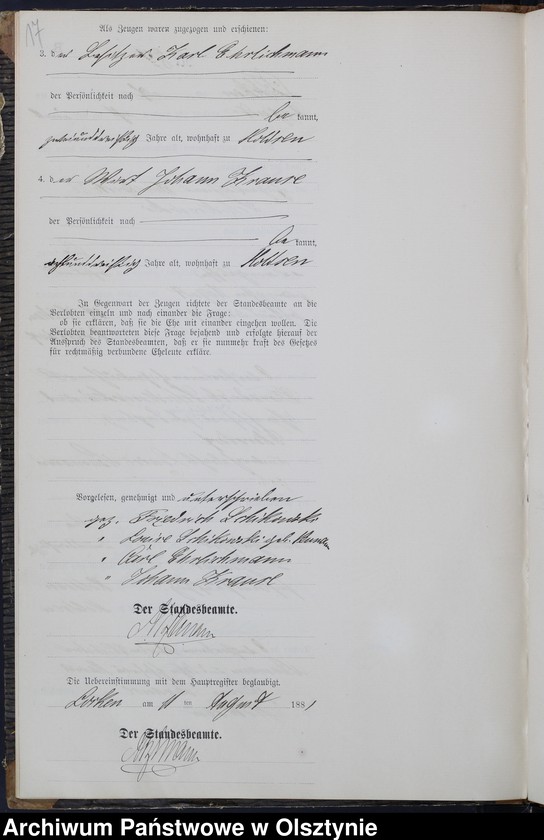 17
Als Zeugen waren zugezogen und erschienen:
3. der Besitzer Karl Ehrlichmann
der Persönlichkeit nach
be kannt,
zweiunddreißig Jahre alt, wohnhaft zu
4. der Wirt Johann Krause
der Persönlichkeit nach
be kannt,
achtunddreißig Jahre alt, wohnhaft zu
In Gegenwart der Zeugen richtete der Standesbeamte an die
Verlobten einzeln und nach einander die Frage:
ob sie erklären, daß sie die Ehe mit einander eingehen wollen. Die
Verlobten beantworteten diese Frage bejahend und erfolgte hierauf der
Ausspruch des Standesbeamten, daß er sie nunmehr kraft des Gesetzes
für rechtmäßig verbundene Eheleute erkläre.
Vorgelesen, genehmigt und unterschrieben
gez. Friedrich Schikowski
" Louise Schikowski geb.
" Karl Ehrlichmann
" Johann Krause
Der Standesbeamte.
Die Uebereinstimmung mit dem Hauptregister beglaubigt.
Locken am 11 ten August 1881
Der Standesbeamte.
Archiwum Państwowe w Olsztynie